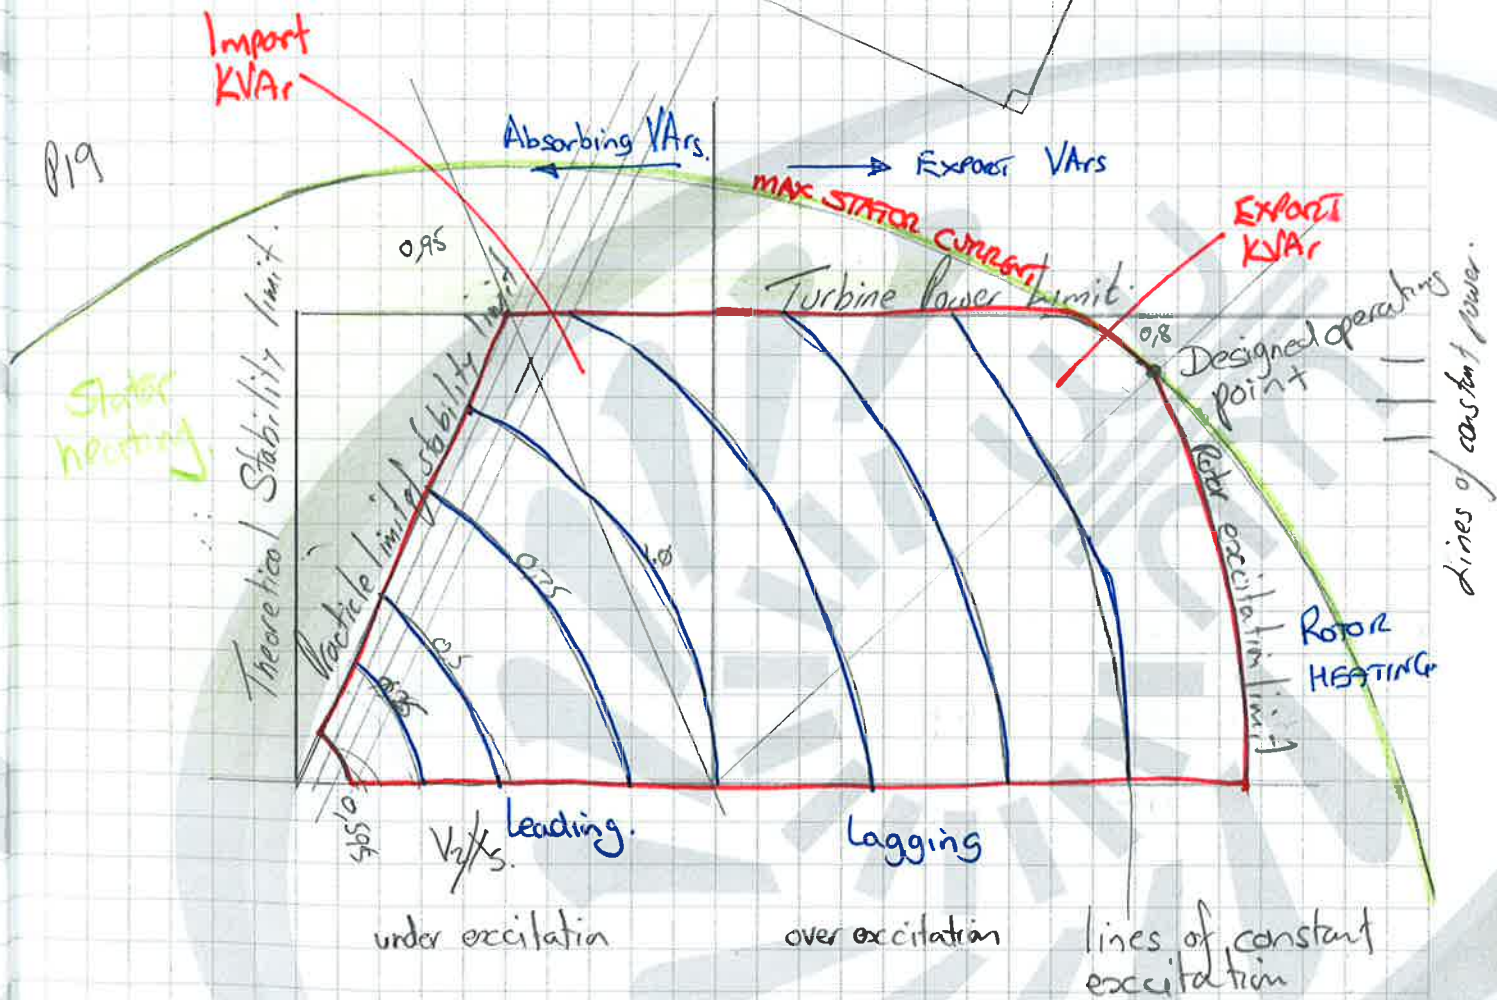 Import
KVAr
P19
Absorbing VArs.
Export VArs
MAX STATOR CURRENT
EXPORT
KVAr
0,95
Turbine Power Limit.
0,8
Designed operating
point
Lines of constant power.
Stator
heating.
Theoretical Stability limit.
Practicle limit of stability limit
Rotor excitation limit
ROTOR
HEATING.
1.0
0,75
0,5
0,25
V2/Xs.
Leading.
Lagging
under excitation
over excitation
lines of constant
exccitation